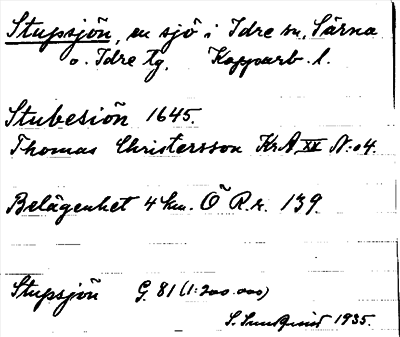 Stupsjön, en sjö i Idre sn, Särna
o. Idre tg. Kopparb. l.
Stubesiön 1645.
Thomas Christersson KrA XX N:o 4.
Belägenhet 4 km. Ö R.r. 139.
Stupsjön G. 81 (1:200.000)
S. Lundqvist 1935.